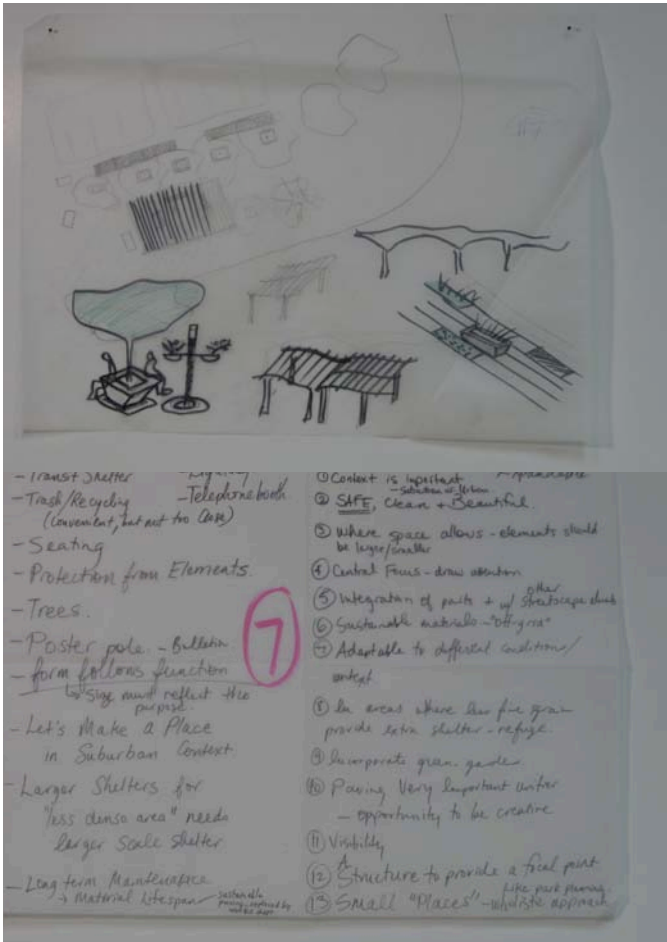 - Transit Shelter
- Trash/Recycling
(convenient, but not too close)
- Seating
- Protection from Elements.
- Trees.
- Poster pole - Bulletin
- form follows function
↳ Size must reflect the
purpose.
- Let's Make a Place
in Suburban Context
- Larger Shelters for
"less dense area" needs
larger scale shelter
- Long term Maintenance
→ Material Lifespan
sustainable
- Telephone booth
7
① Context is important
- suburban or urban
② SAFE, Clean + Beautiful.
③ Where space allows - elements should
be larger/smaller
④ Central Focus - draw attention
⑤ Integration of parts + w/ other streetscape
⑥ Sustainable materials - "off-grid"
⑦ Adaptable to different conditions/
context
⑧ In areas where less fine grain
provide extra shelter - refuge.
⑨ Incorporate green - garden
⑩ Paving Very Important
- opportunity to be creative
⑪ Visibility
⑫ A Structure to provide a focal point
like park
⑬ Small "Places" - approach